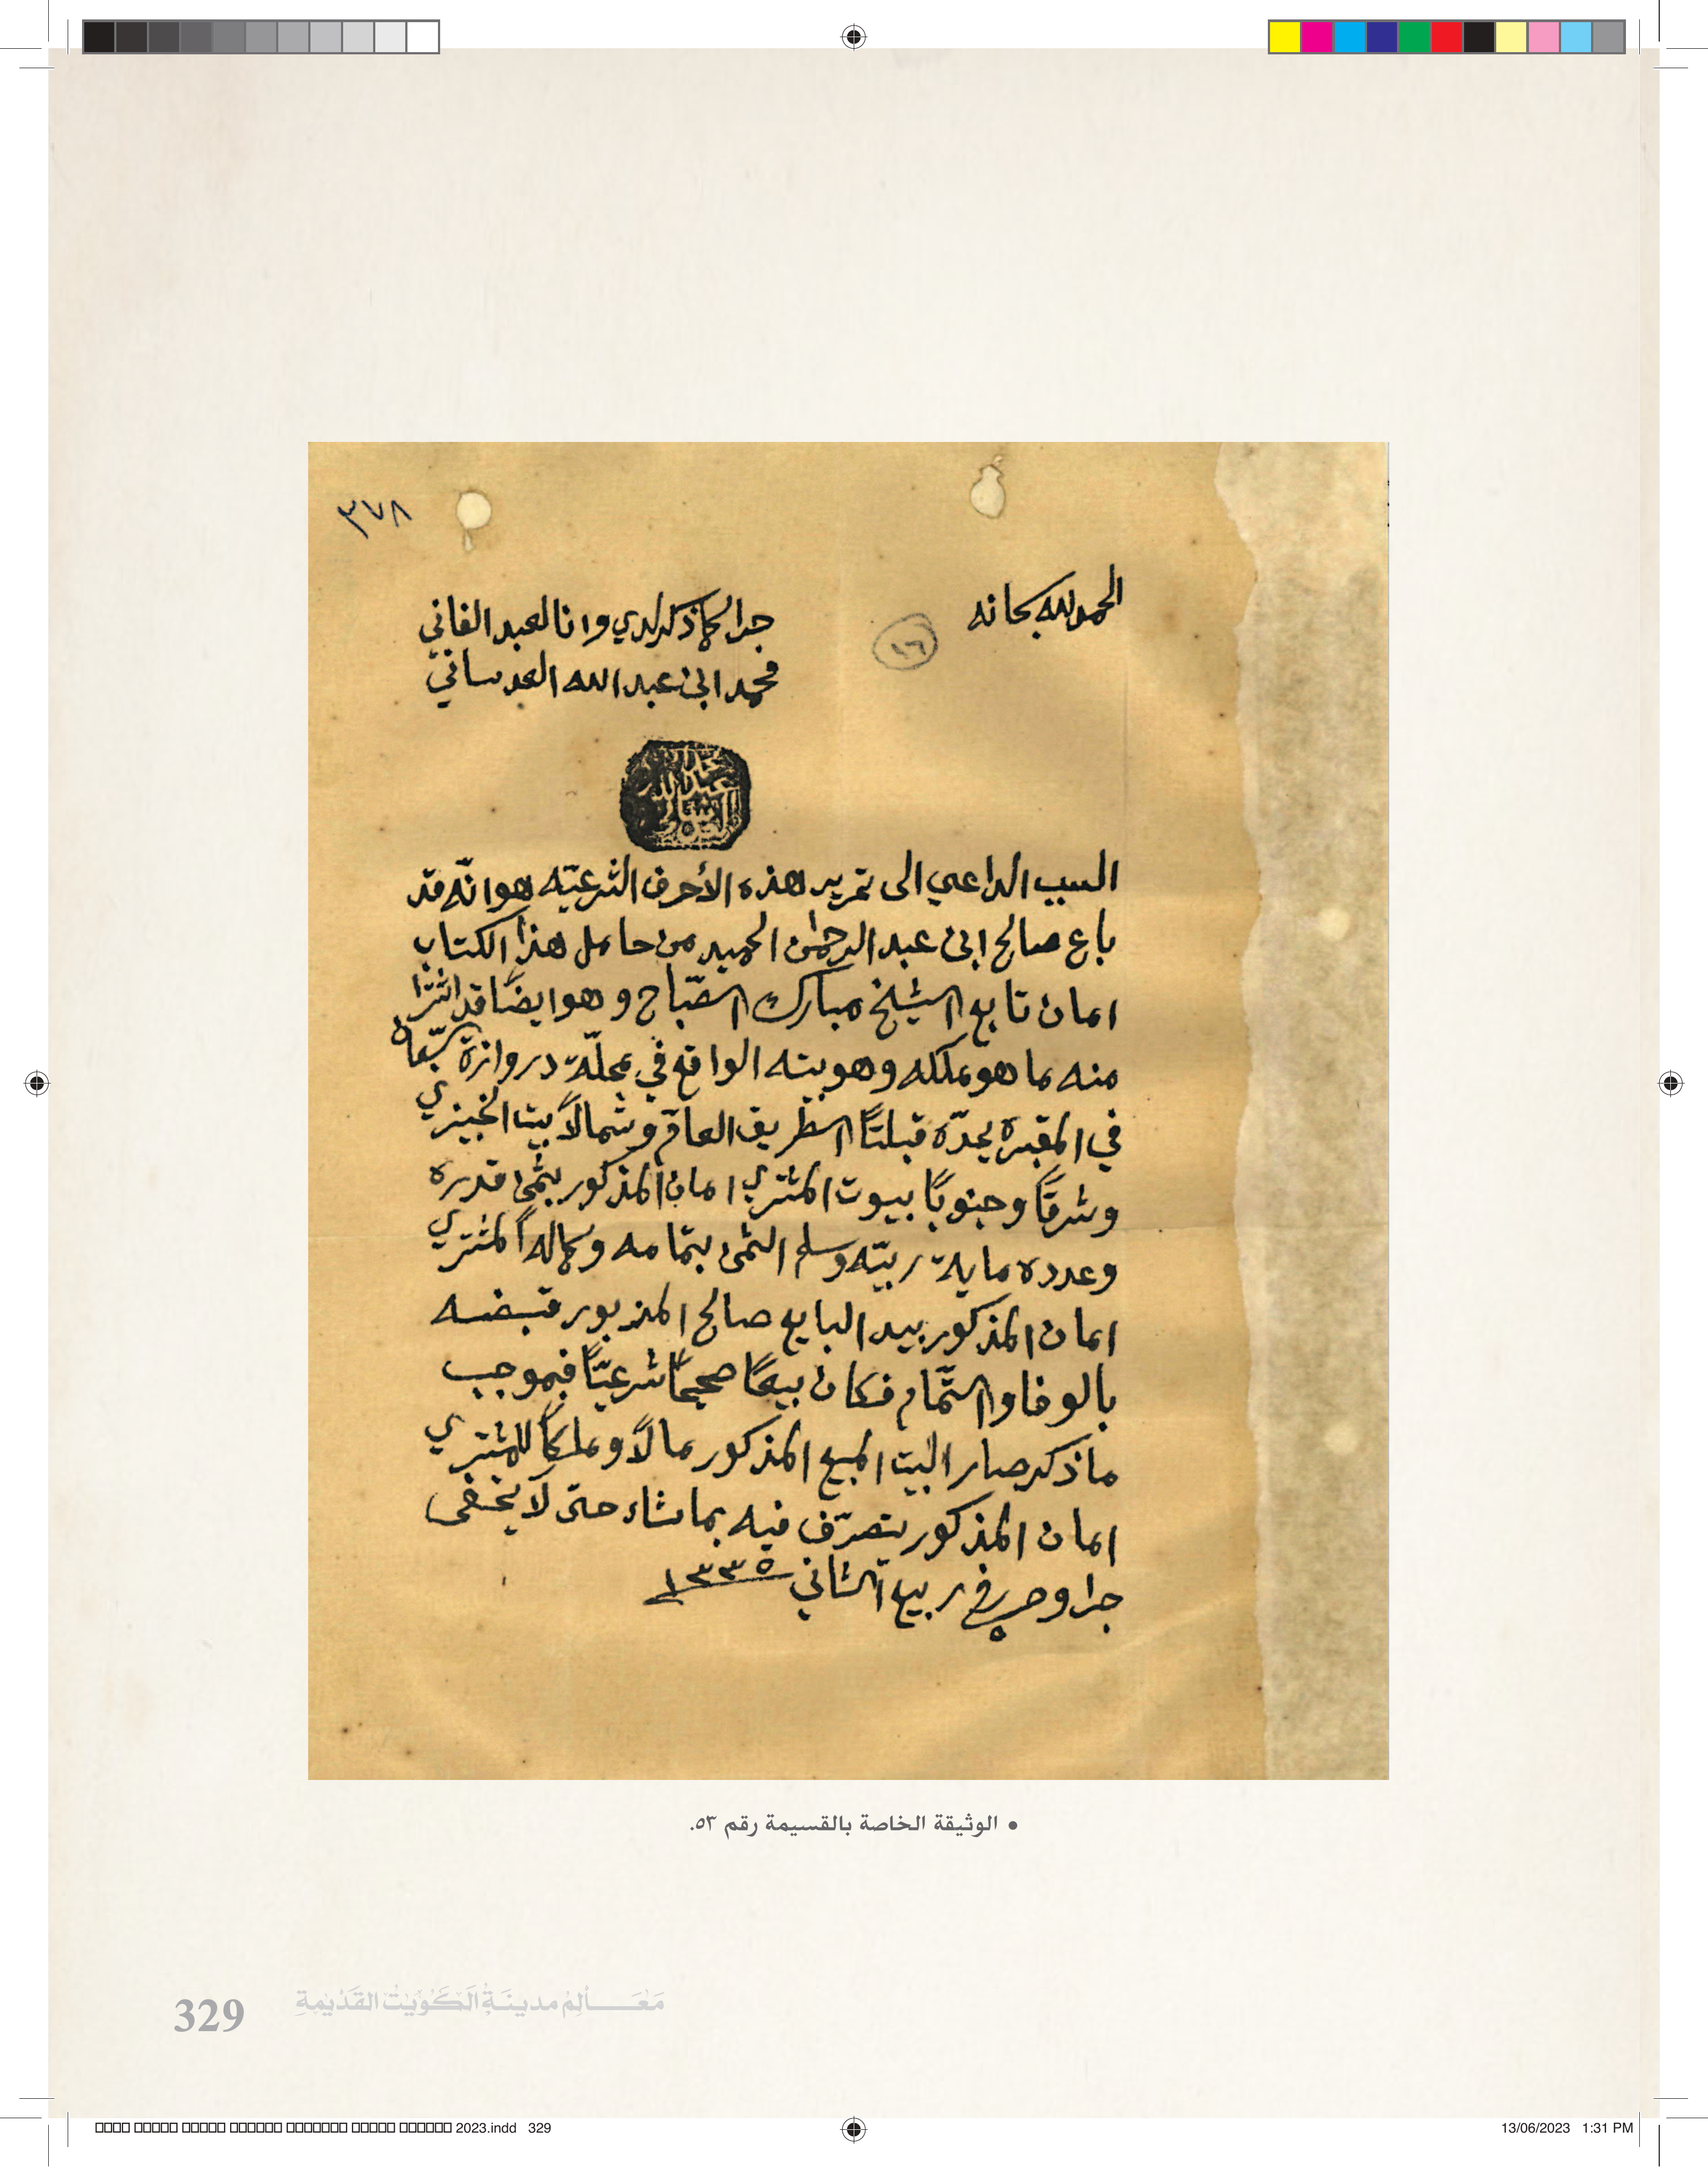 ٣٧٨
الحمد لله سبحانه
١٦
جرا كما ذكر لدي وانا العبد الفاني
محمد ابن عبد الله العدساني
محمد
عبد الله
العدساني
السبب الداعي الى تحرير هذه الأحرف الشرعيّه هو انّه قد
باع صالح ابن عبد الرحمٰن الحميد من حامل هذا الكتاب
امان تابع الشيخ مبارك الصّباح وهو ايضًا قد اشترا
منه ما هو ملكه وهو بيته الواقع في محلّة دروازة
في المقبره يحدّه قبلتًا الطريق العامّ وشمالًا بيت الخبيزي
وشرقًا وجنوبًا بيوت المشتري امان المذكور بثمن قدره
وعدده ماية ربيّه وسلم الثمن بتمامه وكماله المشتري
امان المذكور بيد البايع صالح المزبور فقبضه
بالوفا والتّمام فكان بيعًا صحيحًا شرعيًّا فبموجب
ما ذكر صار البيت المبيع المذكور مالًا وملكًا للمشتري
امان المذكور يتصرّف فيه بما شاء حتى لا يخفى
جرا وحرر في ٥ ربيع الثاني ١٣٣٥
• الوثيقة الخاصة بالقسيمة رقم ٥٣.
329 مَعَـــالِمُ مدينَةِ الكُوَيْت القَدِيمَةِ
2023.indd 329
13/06/2023 1:31 PM